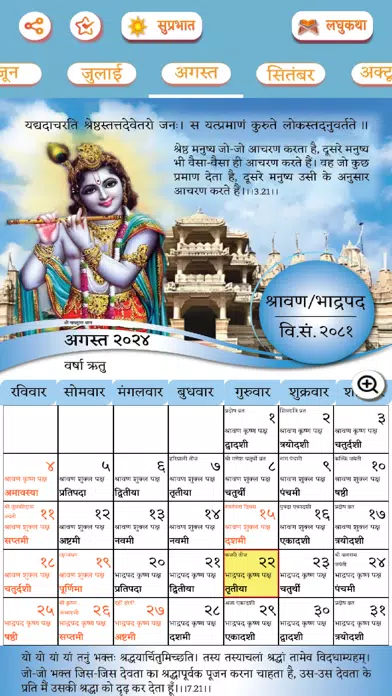 सुप्रभात
लघुकथा
जून
जुलाई
अगस्त
सितंबर
अक्टू
यद्यदाचरति श्रेष्ठस्तत्तदेवेतरो जनः। स यत्प्रमाणं कुरुते लोकस्तदनुवर्तते ॥
श्रेष्ठ मनुष्य जो-जो आचरण करता है, दूसरे मनुष्य
भी वैसा-वैसा ही आचरण करते हैं। वह जो कुछ
प्रमाण देता है, दूसरे मनुष्य उसी के अनुसार
आचरण करते हैं।।३.21।।
श्रावण/भाद्रपद
वि.सं.२०८१
अगस्त २०२४
वर्षा ऋतु
रविवार सोमवार मंगलवार बुधवार गुरुवार शुक्रवार
प्रदोष व्रत
१ २ ३
श्रावण कृष्ण पक्ष श्रावण कृष्ण पक्ष श्रावण कृष्ण पक्ष
द्वादशी त्रयोदशी चतुर्दशी
हरियाली तीज नाग पंचमी
४ ५ ६ ७ ८ ९ १०
श्रावण कृष्ण पक्ष श्रावण शुक्ल पक्ष श्रावण शुक्ल पक्ष श्रावण शुक्ल पक्ष श्रावण शुक्ल पक्ष श्रावण शुक्ल पक्ष श्रावण शुक्ल पक्ष
अमावस्या प्रतिपदा द्वितीया तृतीया चतुर्थी पंचमी षष्ठी
११ १२ १३ १४ १५ १६ १७
श्रावण शुक्ल पक्ष श्रावण शुक्ल पक्ष श्रावण शुक्ल पक्ष श्रावण शुक्ल पक्ष श्रावण शुक्ल पक्ष श्रावण शुक्ल पक्ष श्रावण शुक्ल पक्ष
सप्तमी अष्टमी नवमी दशमी एकादशी द्वादशी
रक्षाबन्धन कजली तीज
१८ १९ २० २१ २२ २३ २४
श्रावण शुक्ल पक्ष श्रावण शुक्ल पक्ष भाद्रपद कृष्ण पक्ष भाद्रपद कृष्ण पक्ष भाद्रपद कृष्ण पक्ष भाद्रपद कृष्ण पक्ष भाद्रपद कृष्ण पक्ष
चतुर्दशी पूर्णिमा प्रतिपदा द्वितीया तृतीया चतुर्थी पंचमी
अजा एकादशी
२५ २६ २७ २८ २९ ३० ३१
भाद्रपद कृष्ण पक्ष भाद्रपद कृष्ण पक्ष भाद्रपद कृष्ण पक्ष भाद्रपद कृष्ण पक्ष भाद्रपद कृष्ण पक्ष भाद्रपद कृष्ण पक्ष भाद्रपद कृष्ण पक्ष
षष्ठी अष्टमी नवमी दशमी एकादशी द्वादशी त्रयोदशी
यो यो यां यां तनुं भक्तः श्रद्धयार्चितुमिच्छति। तस्य तस्याचलां श्रद्धां तामेव विदधाम्यहम्।
जो-जो भक्त जिस-जिस देवता का श्रद्धापूर्वक पूजन करना चाहता है, उस-उस देवता के
प्रति मैं उसकी श्रद्धा को दृढ़ कर देता हूँ।।17.21।।